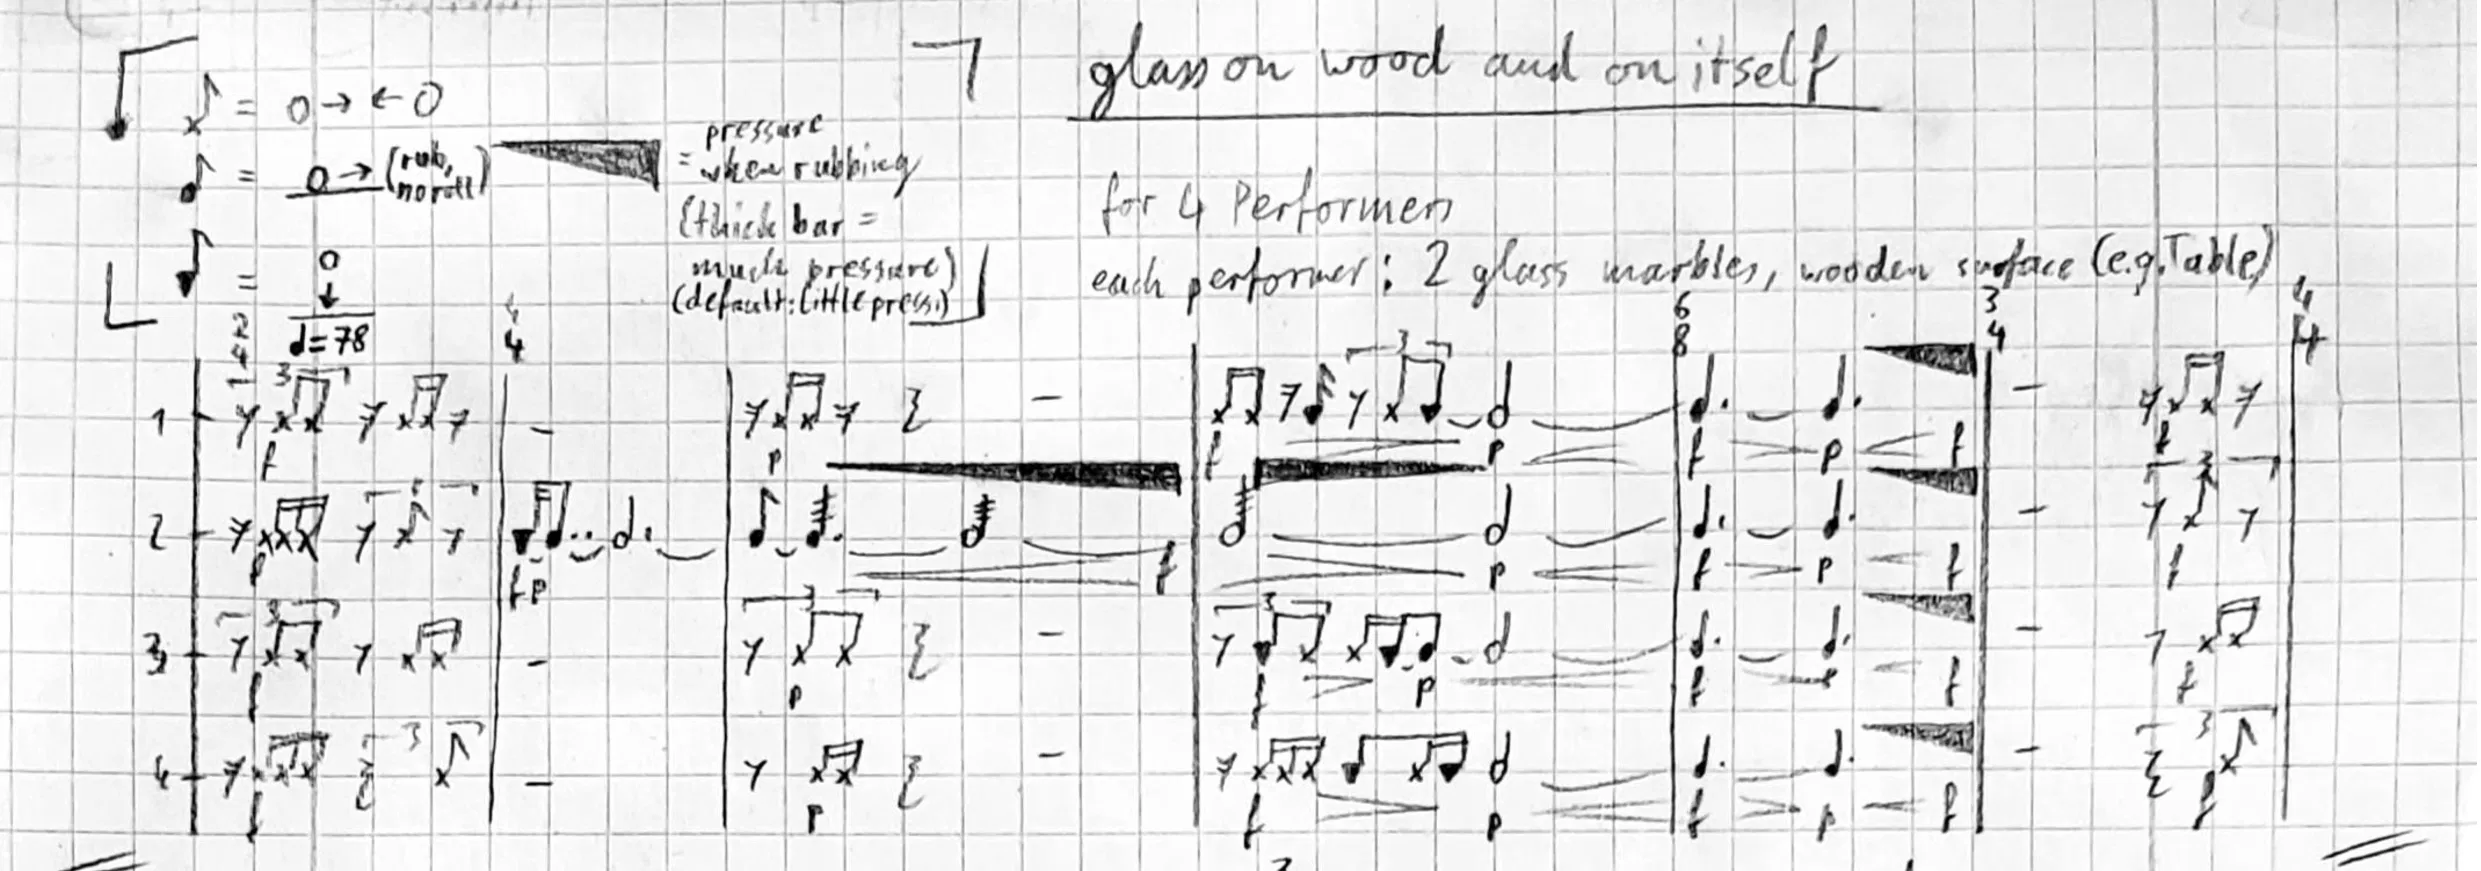 glass on wood and on itself
= o → ← o
= o → (rub, no roll)
= pressure
when rubbing
(thick bar =
much pressure)
(default: little press.)
for 4 Performers
each performer: 2 glass marbles, wooden surface (e.g. Table)
=78
2 4 4 6 8 3 4 4 4
1 3 3
f p f p f p f f
2 3
f fp f p f p f f
3 3 3 3
f p f p f f f
4 3 3
f p f p f p f f